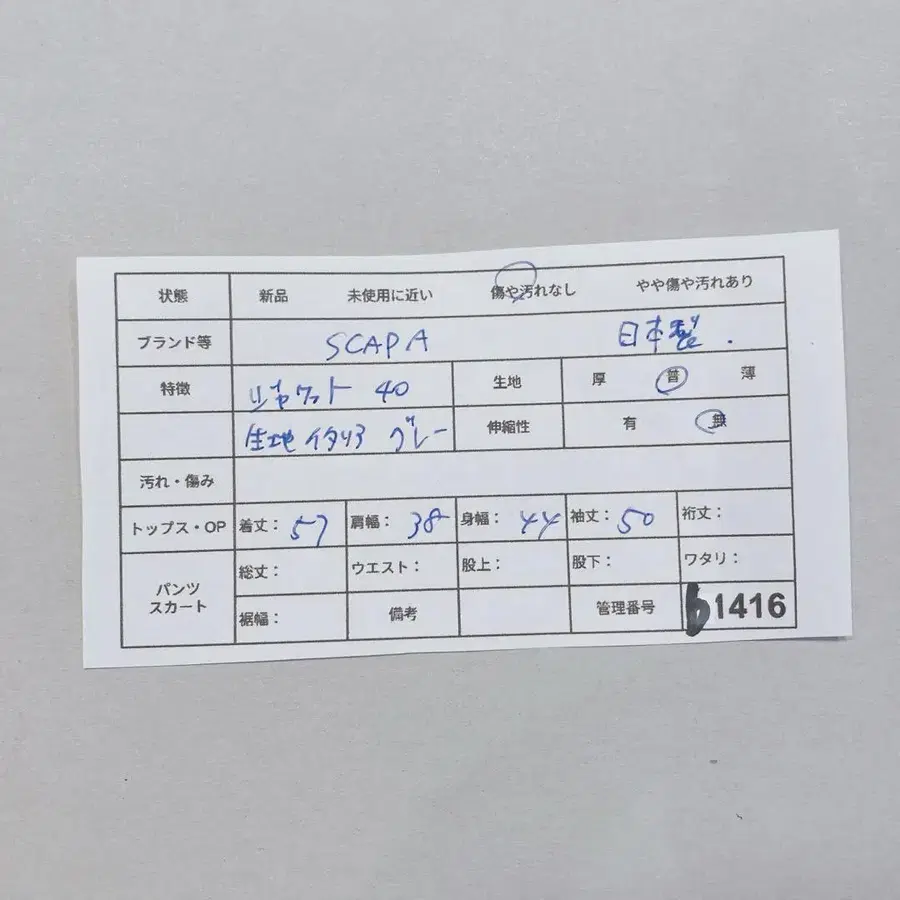 状態 新品 未使用に近い 傷や汚れなし やや傷や汚れあり
ブランド等 SCAPA 日本製.
特徴 ジャケット 40 生地 厚 普 薄
生地イタリア グレー 伸縮性 有 無
汚れ・傷み
トップス・OP 着丈: 57 肩幅: 38 身幅: 44 袖丈: 50 裄丈:
パンツ スカート 総丈: ウエスト: 股上: 股下: ワタリ:
裾幅: 備考 管理番号 b1416